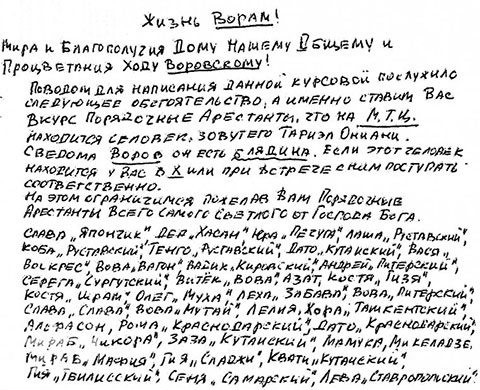 Жизнь Ворам!
Мира и Благополучия Дому Нашему Общему и
Процветания Ходу Воровскому!
Поводом для написания данной курсовой послужило
следующее обстоятельство, а именно ставим Вас
вкурс Порядочные Арестанты, что на М.Т.Ц.
находится селовек, зовутего Тариэл Ониани.
Сведома Воров он есть блядина. Если этот человек
находится у Вас в Х или при встрече с ним поступать
соответственно.
На этом ограничимся пожелав Вам Порядочные
Арестанты Всего Самого Светлого от Господа Бога.
Слава „Япончик" Дед „Хасан" Юра „Пичуга" Лаша „Руставский",
Коба „Руставский", Тенго „Руставский", Дато „Кутаиский", Вася „
Воскрес", Вова „Вагон", Вадик „Кировский", Андрей „Питерский",
Серега „Сургутский", Витёк „Вова", Азат, Костя „Гизя",
Костя „Шрам", Олег „Муха", Леха „Забава", Вова „Питерский",
Слава „Слава", Вова „Мутай", Лелия, Хора „Ташкентский",
Альфасон, Рома „Краснодарский", Дато „Краснодарский",
Мираб „Чикора", Заза „Кутаиский", Мамука, Микеладзе,
Мираб „Мафия", Гия „Сладжи", Квати „Кутаиский",
Гия „Тбилисский", Сеня „Самарский", Лева „Ставропольский"